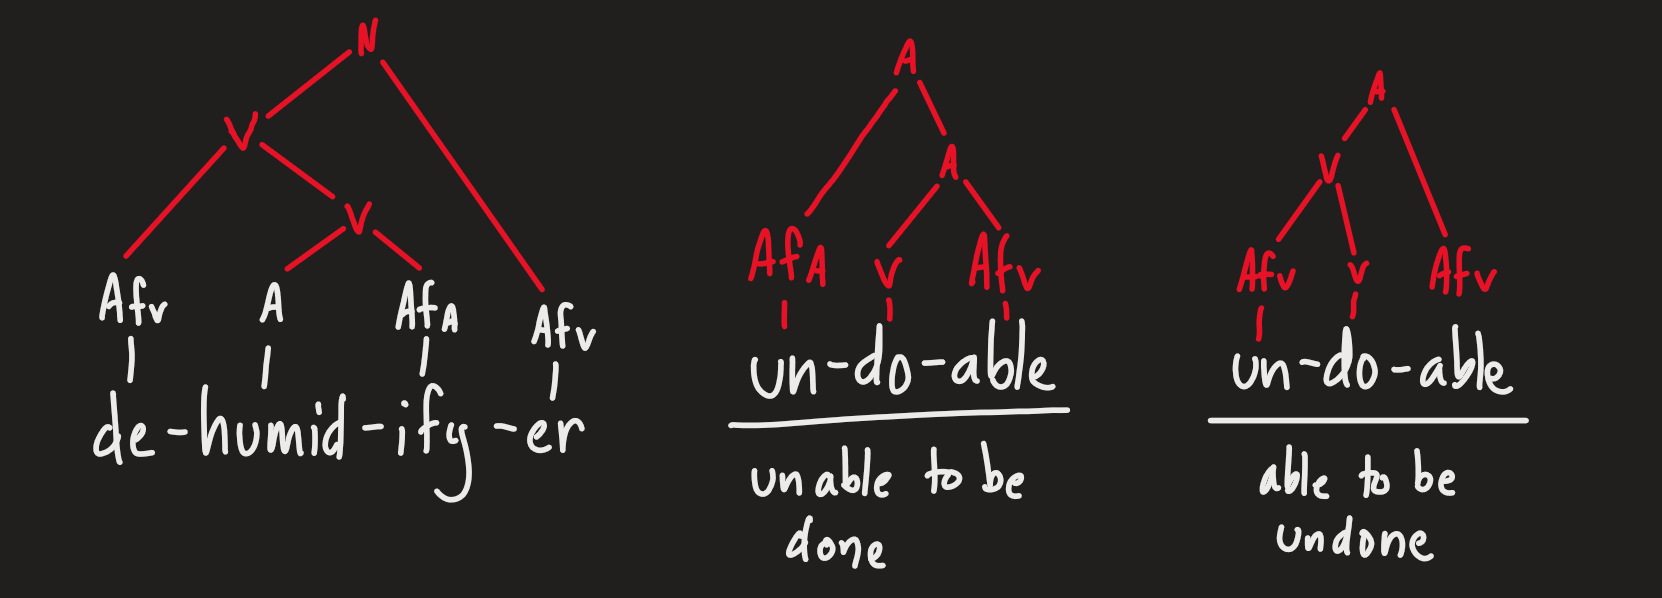 N
V
V
Afv A AfA Afv
de-humid-ify-er
A
A
AfA v Afv
un-do-able
unable to be
done
A
V
Afv v Afv
un-do-able
able to be
undone